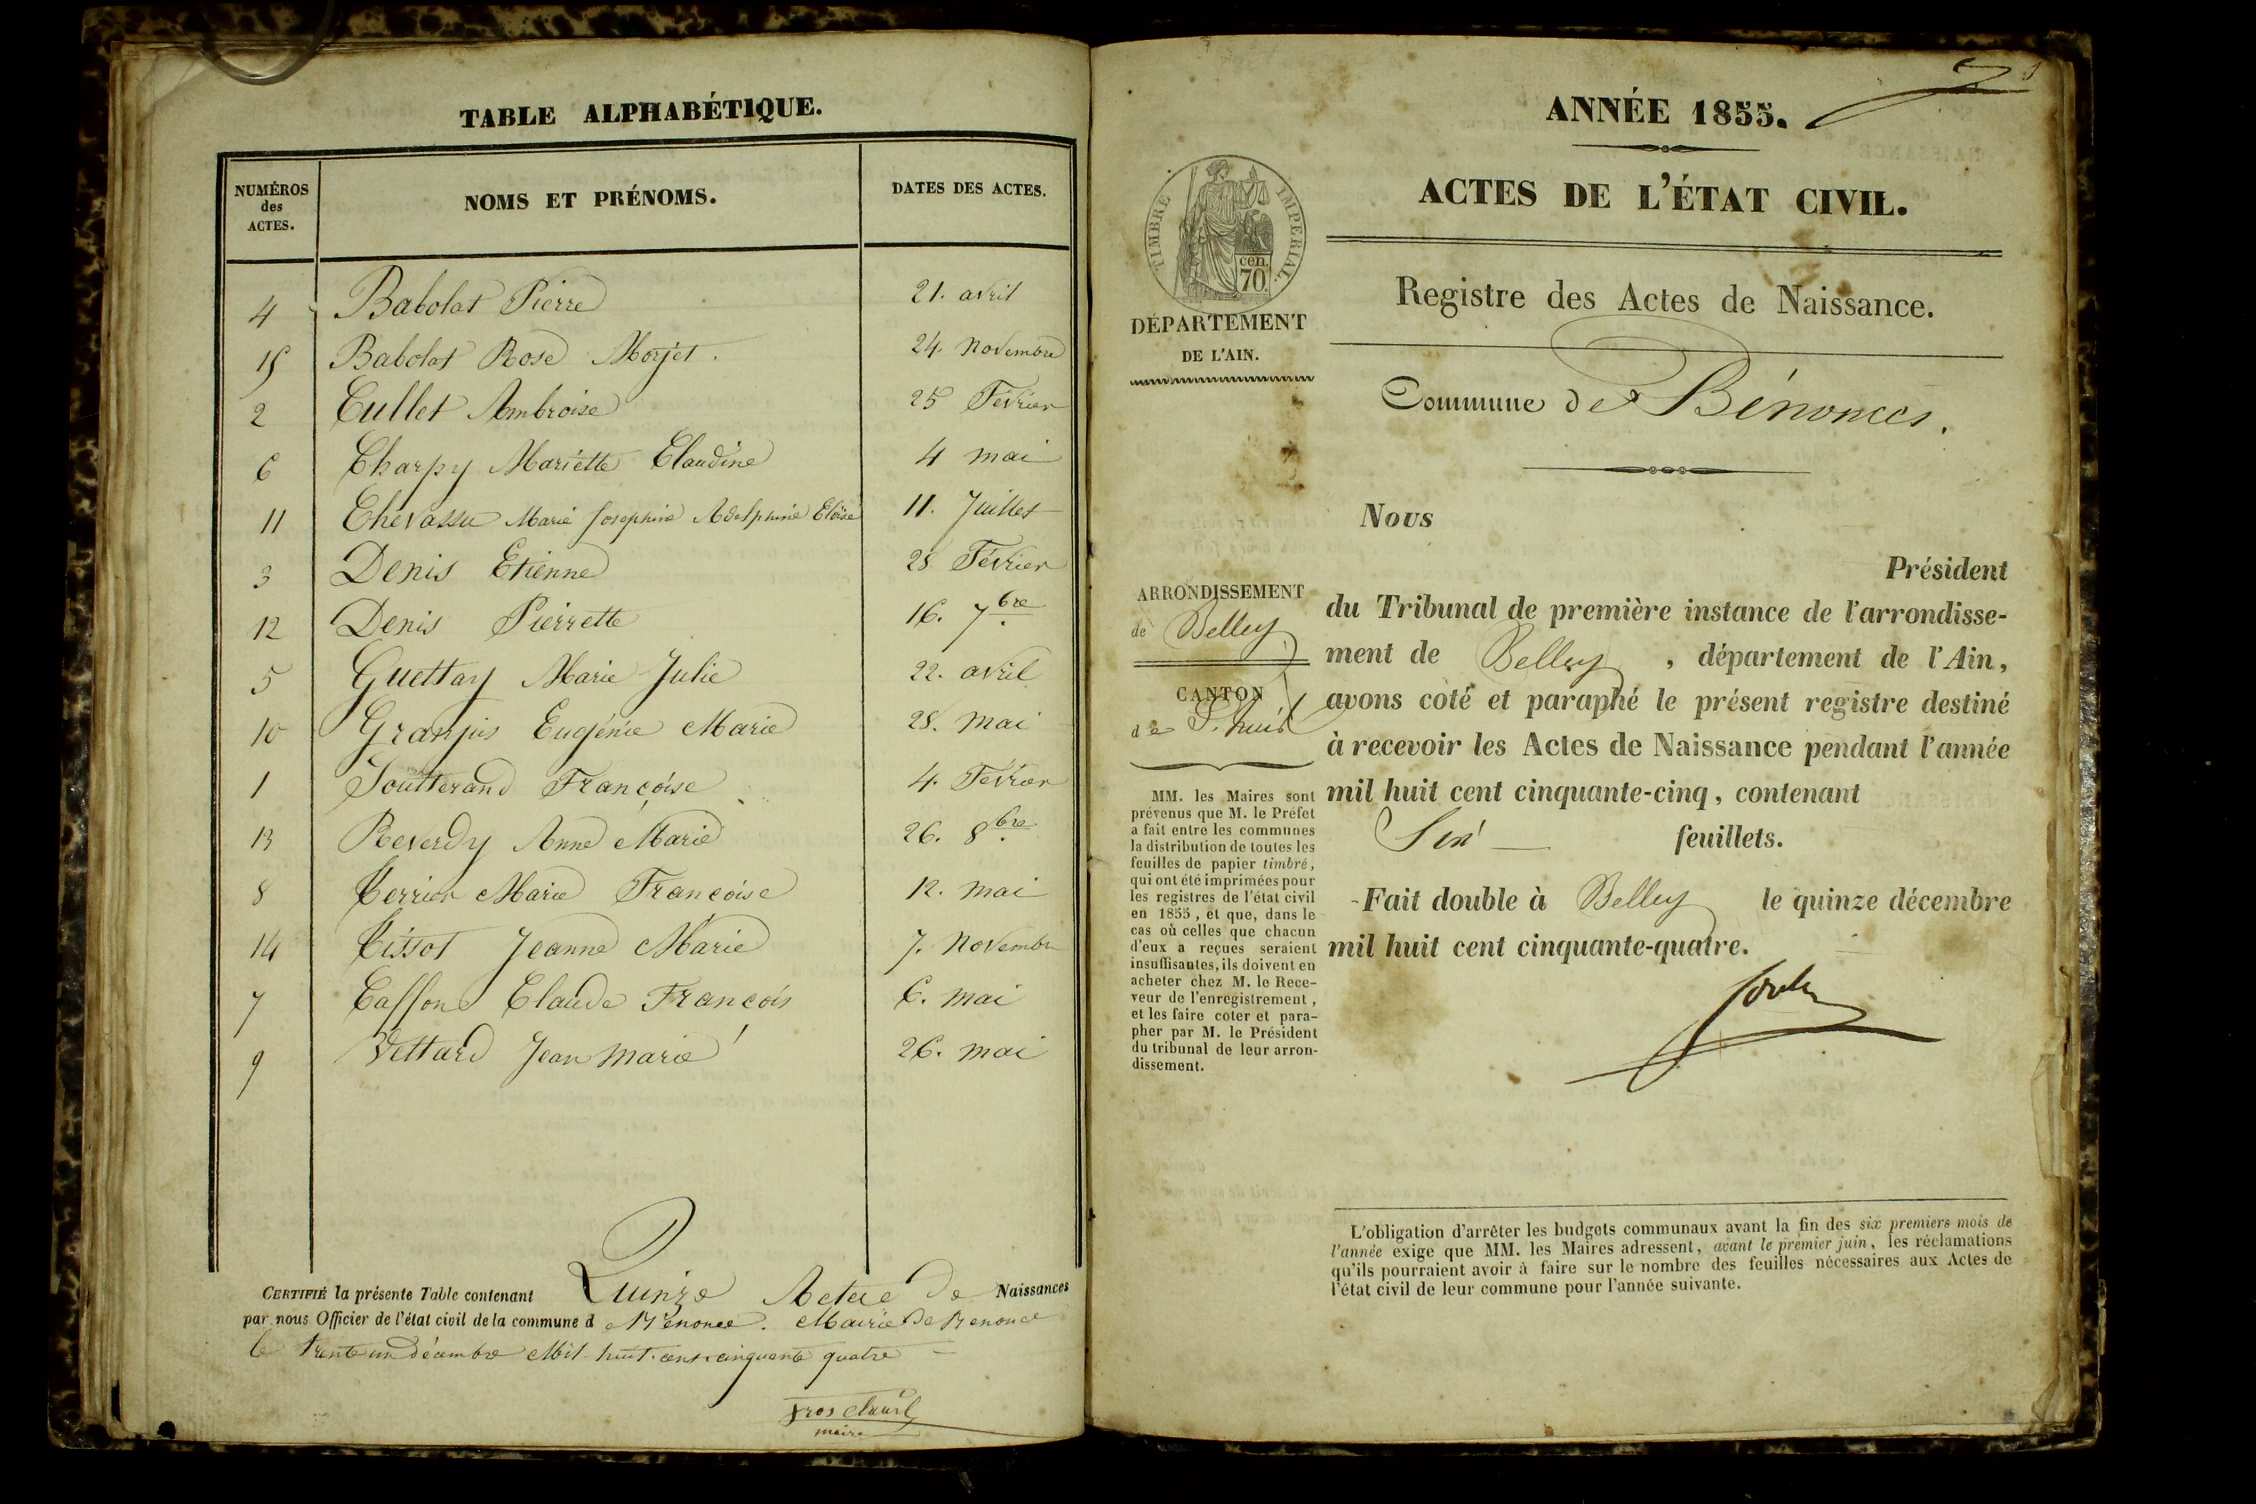 TABLE ALPHABÉTIQUE.
NUMÉROS des ACTES.
NOMS ET PRÉNOMS.
DATES DES ACTES.
4 Babolat Pierre 21. avril
15 Babolat Rose 24. Novembre
2 Cullet Ambroise 25 Fevrier
6 Charpy Mariette Claudine 4 mai
11 Chevassu Marie Josephine Adelphine Eloïse 11. Juillet
3 Denis Etienne 28 Février
12 Denis Pierrette 16. 7bre
5 Guettay Marie Julie 22. avril
10 Granjus Eugénie Marie 28. Mai
1 Joutterand Françoise 4. Février
13 Reverdy Anne Marie 26. 8bre
8 Marie Françoise 12. mai
14 Tissot Jeanne Marie 7. Novembre
7 Claude François 6. mai
9 Vettard Jean marie 26. mai
CERTIFIÉ la présente Table contenant Quinze Actes de Naissances
par nous Officier de l'état civil de la commune d e Bénonce. Mairie de Benonce
le trente un décembre Mil huit cent cinquante quatre
maire
ANNÉE 1855.
ACTES DE L'ÉTAT CIVIL.
TIMBRE IMPERIAL.
cen. 70
DÉPARTEMENT
DE L'AIN.
Registre des Actes de Naissance.
Commune de Bénonces.
Nous
Président
ARRONDISSEMENT
de Belley
CANTON
de
du Tribunal de première instance de l'arrondisse-
ment de Belley, département de l'Ain,
avons coté et paraphé le présent registre destiné
à recevoir les Actes de Naissance pendant l'année
mil huit cent cinquante-cinq, contenant
Six feuillets.
Fait double à Belley le quinze décembre
mil huit cent cinquante-quatre.
MM. les Maires sont
prévenus que M. le Préfet
a fait entre les communes
la distribution de toutes les
feuilles de papier timbré,
qui ont été imprimées pour
les registres de l'état civil
en 1855, et que, dans le
cas où celles que chacun
d'eux a reçues seraient
insuffisantes, ils doivent en
acheter chez M. le Rece-
veur de l'enregistrement,
et les faire coter et para-
pher par M. le Président
du tribunal de leur arron-
dissement.
L'obligation d'arrêter les budgets communaux avant la fin des six premiers mois de
l'année exige que MM. les Maires adressent, avant le premier juin, les réclamations
qu'ils pourraient avoir à faire sur le nombre des feuilles nécessaires aux Actes de
l'état civil de leur commune pour l'année suivante.